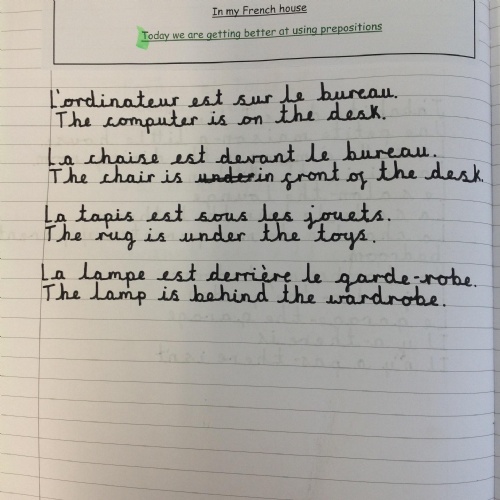 In my French house
Today we are getting better at using prepositions
L'ordinateur est sur le bureau.
The computer is on the desk.
La chaise est devant le bureau.
The chair is under in front of the desk.
La tapis est sous les jouets.
The rug is under the toys.
La lampe est derrière le garde-robe.
The lamp is behind the wardrobe.